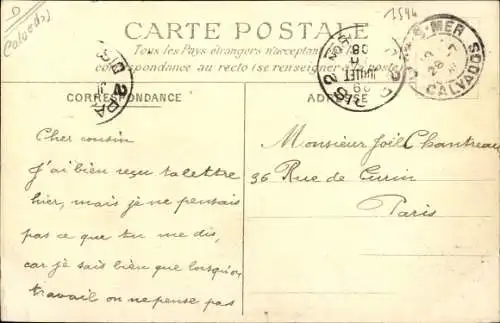 D
Calvados
1594
CARTE POSTALE
Tous les Pays étrangers n'acceptant
correspondance au recto (se renseigner à la poste)
CORRESPONDANCE
ADRESSE
S-MER
CALVADOS
28
JUILLET
08
Cher cousin
J'ai bien reçu ta lettre
hier, mais je ne pensais
pas ce que tu me dis,
car je sais bien que lorsqu'on
travail on ne pense pas
Monsieur Joël Chantreau
36 Rue de
Paris